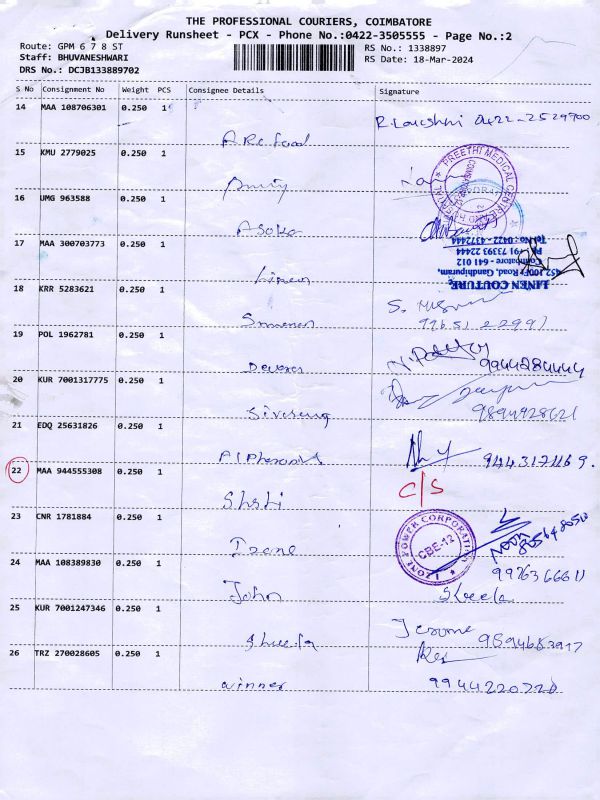 THE PROFESSIONAL COURIERS, COIMBATORE
Delivery Runsheet - PCX - Phone No.:0422-3505555 - Page No.:2
Route: GPM 6 7 8 ST
RS No.: 1338897
Staff: BHUVANESHWARI
RS Date: 18-Mar-2024
DRS No.: DCJB133889702
S No Consignment No Weight PCS Consignee Details Signature
14 MAA 108706301 0.250 1
R. Lakshmi 0422-2529700
ARC food
15 KMU 2779025 0.250 1
PREETHI MEDICAL CENTRE
16 UMG 963588 0.250 1
Asoka
17 MAA 300703773 0.250 1
LINEN COUTURE
452, 100Ft Road, Gandhipuram,
Coimbatore - 641 012
Ph: +91 73393 22444
Tel No: 0422 - 4372444
Linen
18 KRR 5283621 0.250 1
19 POL 1962781 0.250 1
9944284444
20 KUR 7001317775 0.250 1
9894928621
21 EDQ 25631826 0.250 1
22 MAA 944555308 0.250 1
C/S
23 CNR 1781884 0.250 1
IZONE POWER CORPORATION
CBE-12
Izone
24 MAA 108389830 0.250 1
John
Sheela
25 KUR 7001247346 0.250 1
Jerome
Sheela
26 TRZ 270028605 0.250 1
winner
9944220720